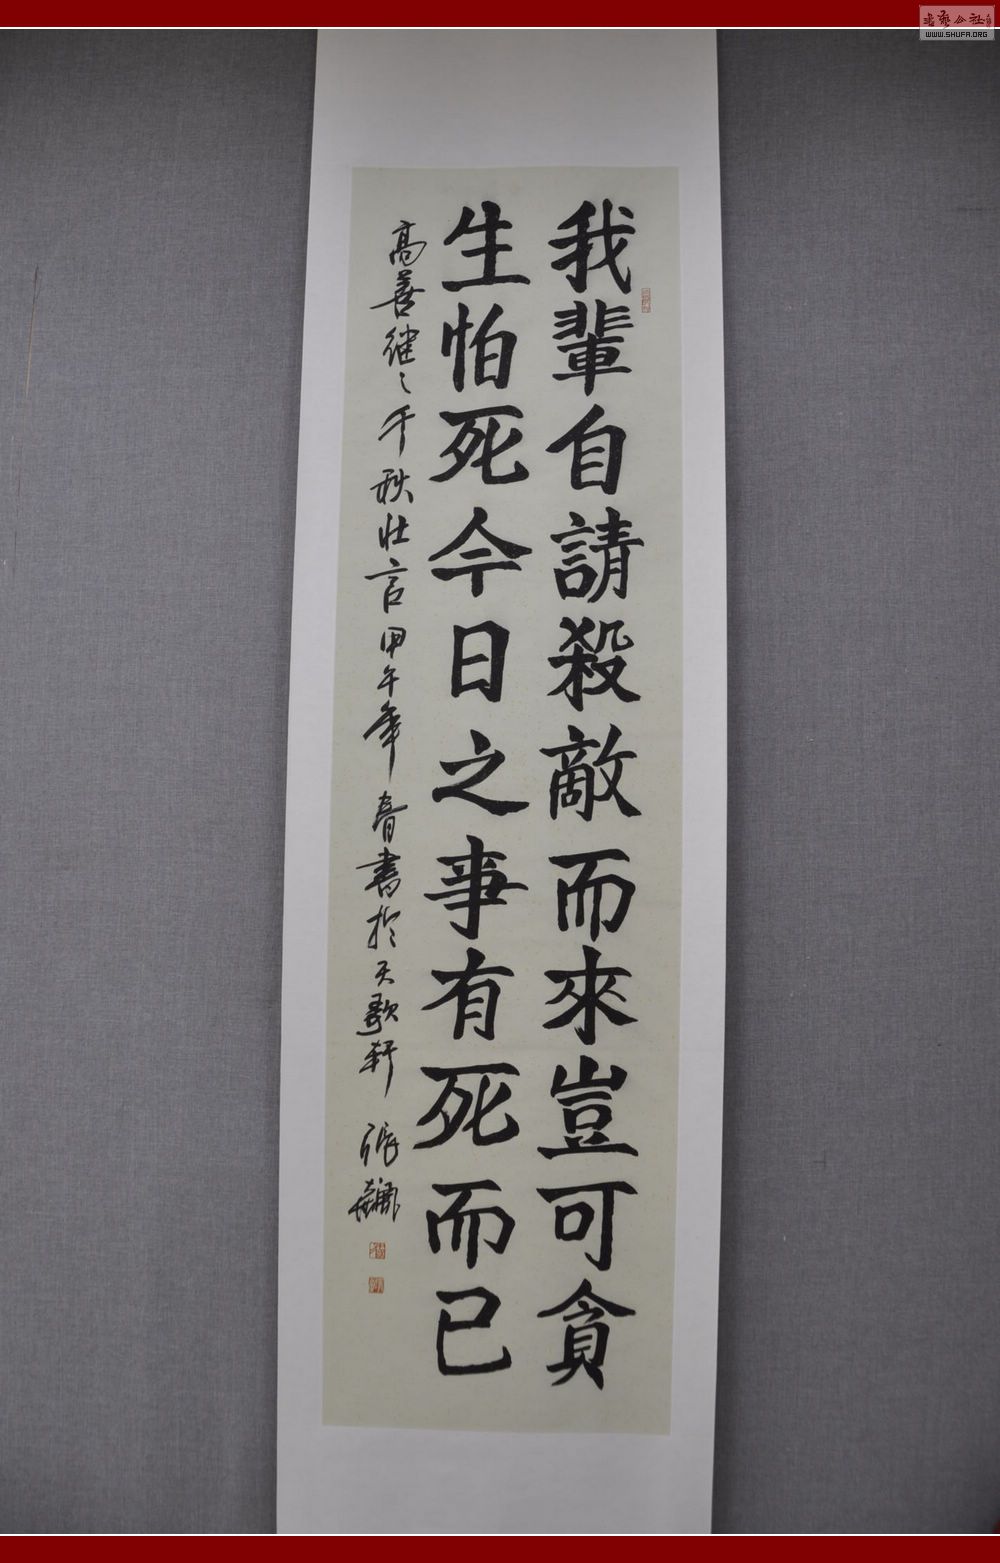 我輩自請殺敵而來豈可貪
生怕死今日之事有死而已
高善继之千秋壮言甲午年春書於天歌軒 張
WWW.SHUFA.ORG